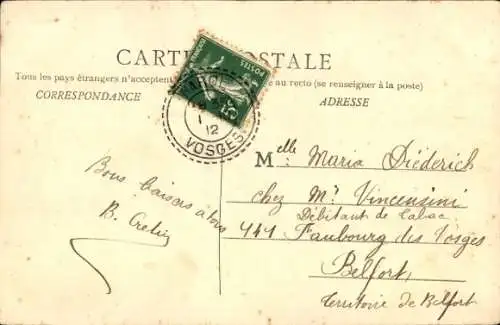 CARTE POSTALE
Tous les pays étrangers n'acceptent au recto (se renseigner à la poste)
CORRESPONDANCE
ADRESSE
POSTES
12
VOSGES
Melle Maria Diéderich
chez Mr Vincensini
Débitant de Tabac
Faubourg des Vosges
Belfort
Territoire de Belfort
Bons baisers à tous
B.